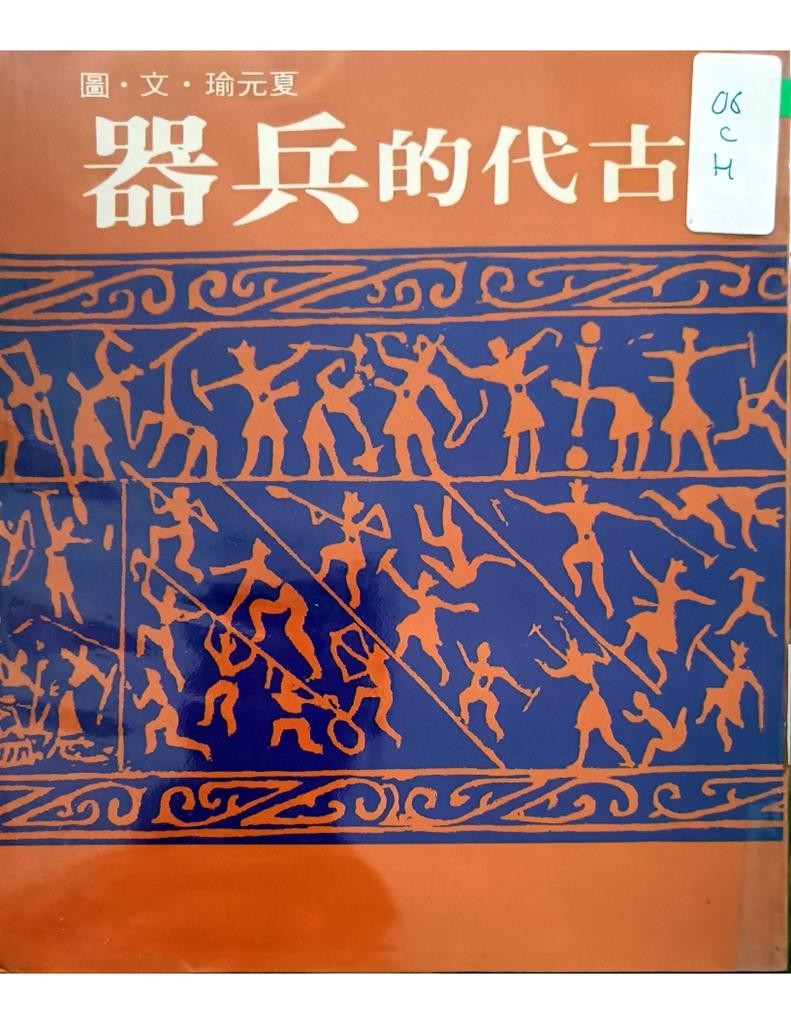 夏元瑜・文・圖
古代的兵器
06
C
H